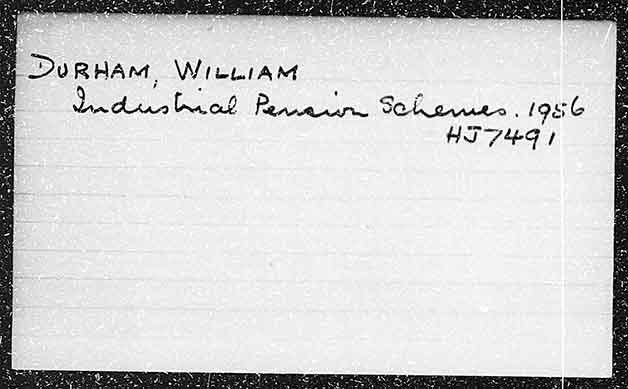 DURHAM, WILLIAM
Industrial Pension Schemes. 1956
HJ7491